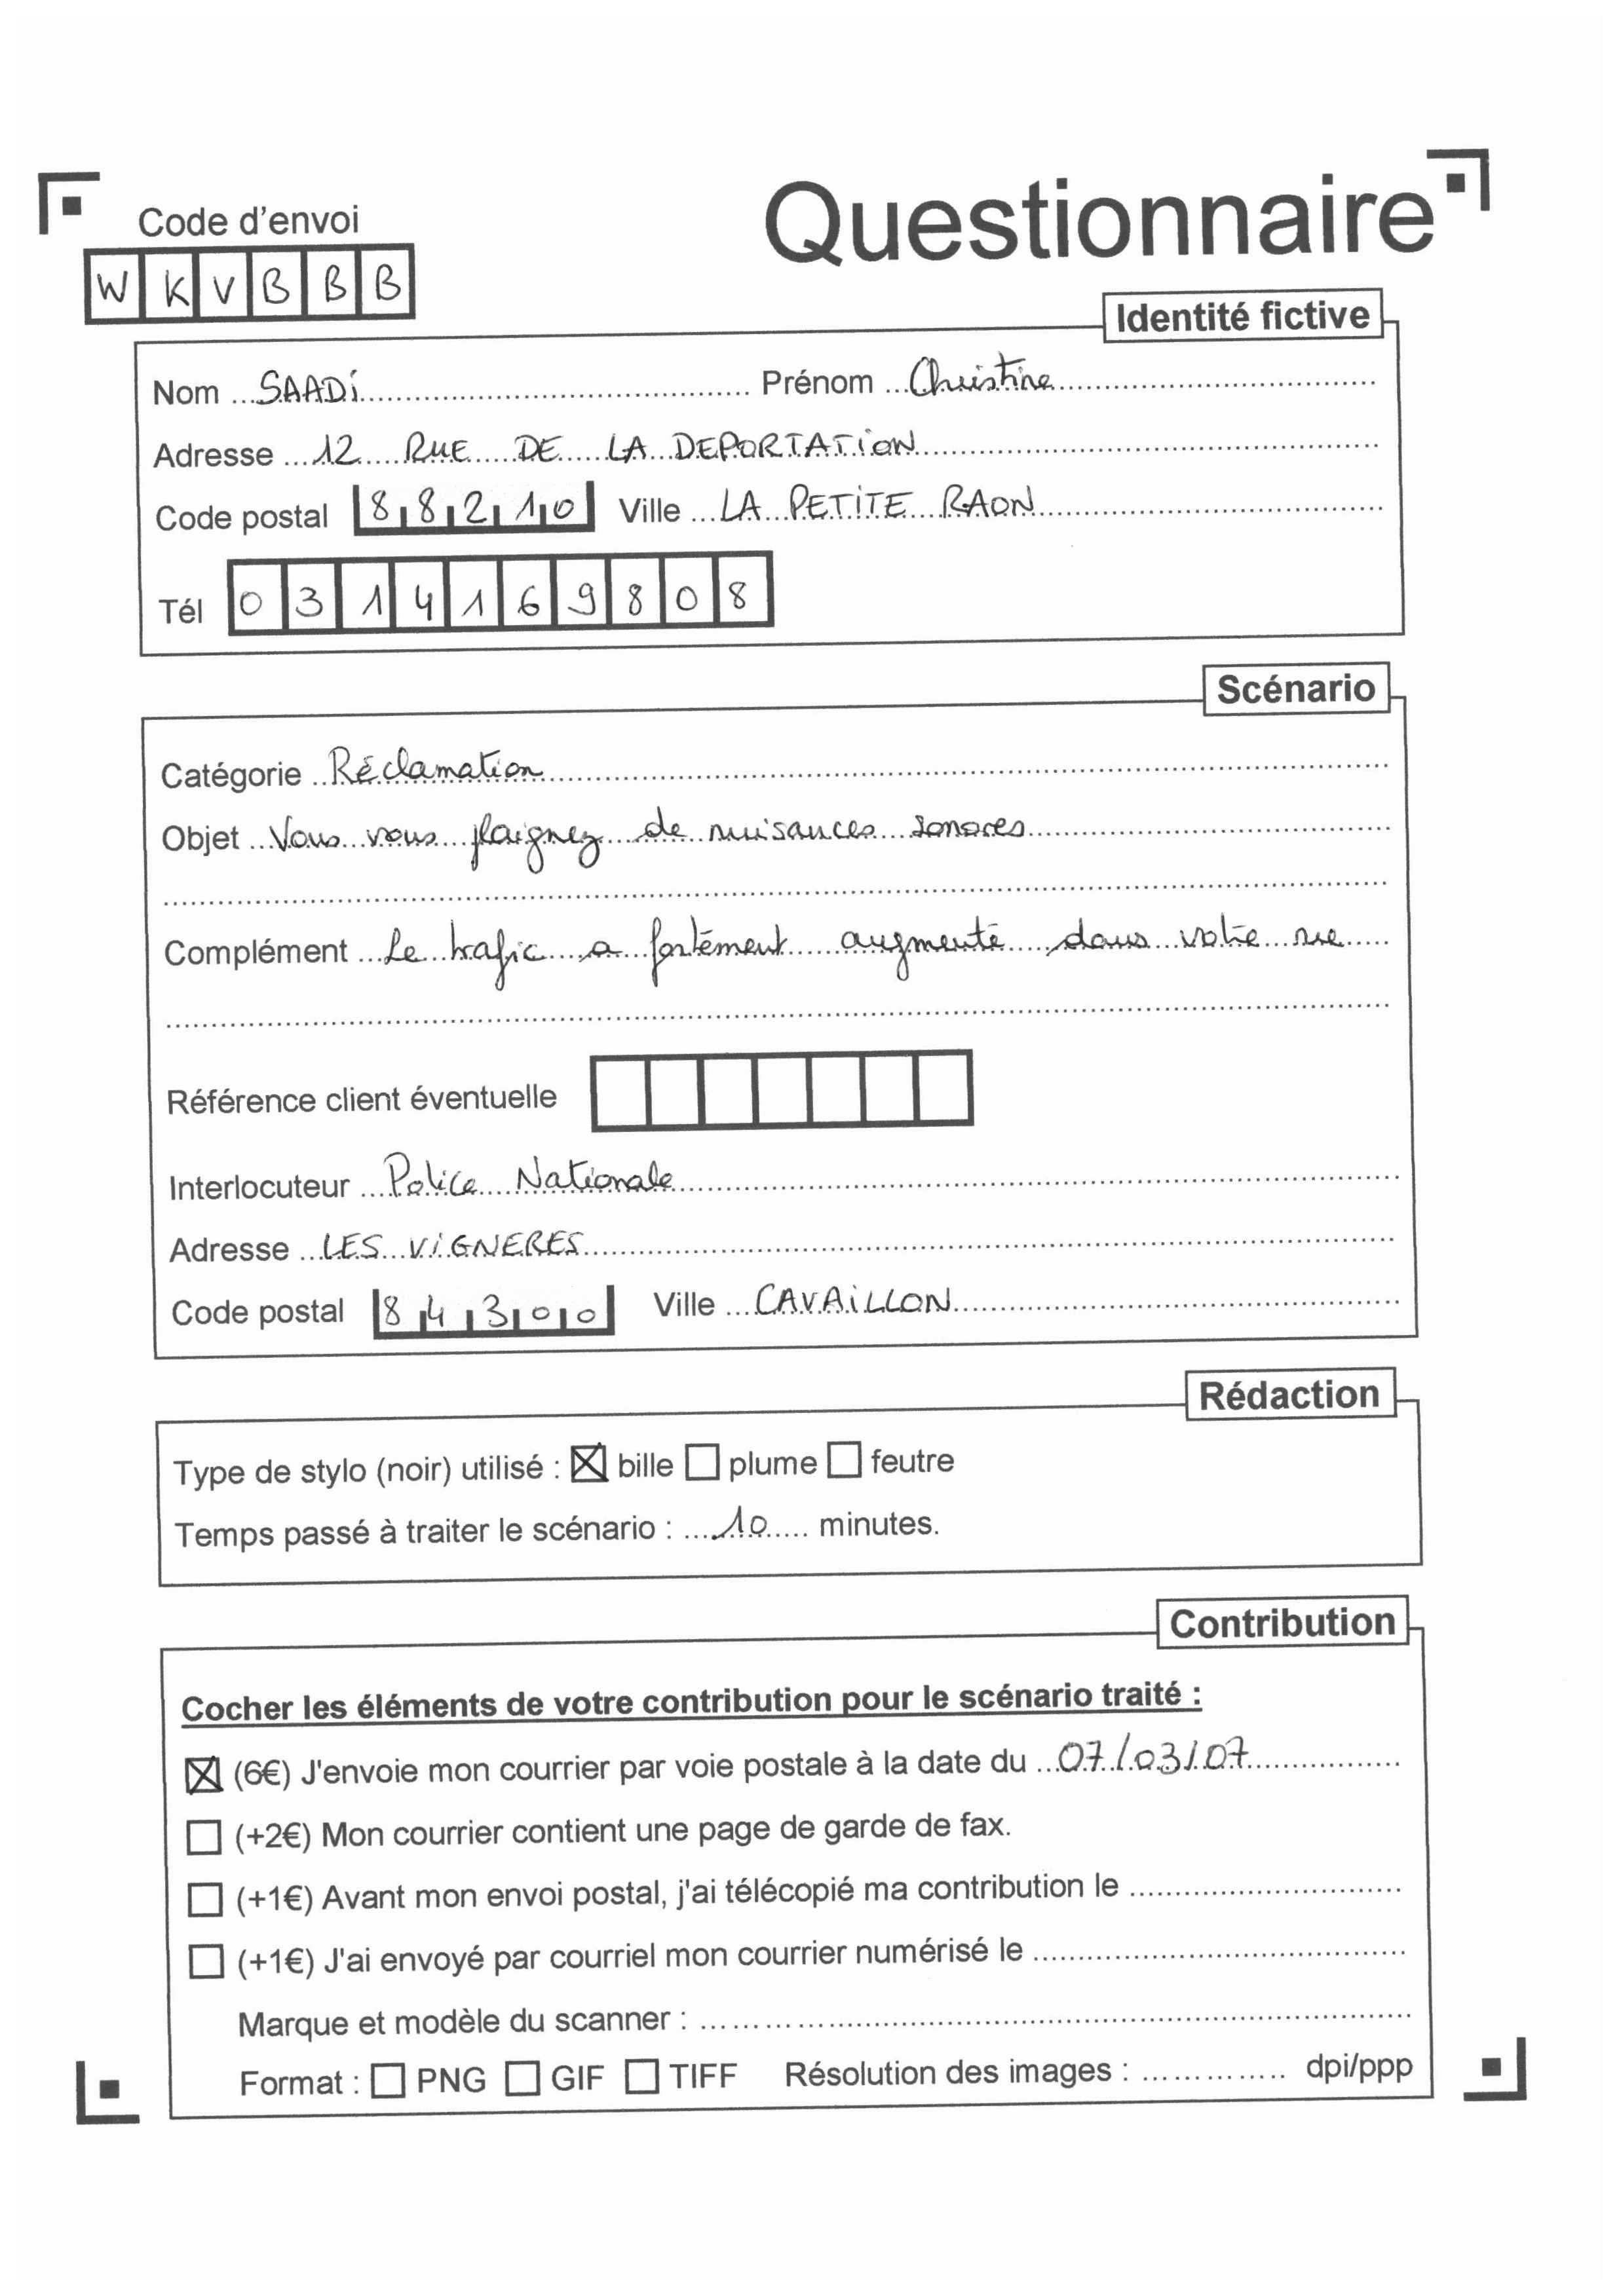 Questionnaire
Code d'envoi
WKVBBB
Identité fictive
Nom SAADI Prénom Christine
Adresse 12 RUE DE LA DEPORTATION
Code postal 88210 Ville LA PETITE RAON
Tél 0314169808
Scénario
Catégorie Réclamation
Objet Vous vous plaignez de nuisances sonores
Complément Le trafic a fortement augmenté dans votre rue
Référence client éventuelle
Interlocuteur Police Nationale
Adresse LES VIGNERES
Code postal 84300 Ville CAVAILLON
Rédaction
Type de stylo (noir) utilisé : ☒ bille ☐ plume ☐ feutre
Temps passé à traiter le scénario : 10 minutes.
Contribution
Cocher les éléments de votre contribution pour le scénario traité :
☒ (6€) J'envoie mon courrier par voie postale à la date du 07/03/07
☐ (+2€) Mon courrier contient une page de garde de fax.
☐ (+1€) Avant mon envoi postal, j'ai télécopié ma contribution le
☐ (+1€) J'ai envoyé par courriel mon courrier numérisé le
Marque et modèle du scanner :
Format : ☐ PNG ☐ GIF ☐ TIFF Résolution des images : dpi/ppp